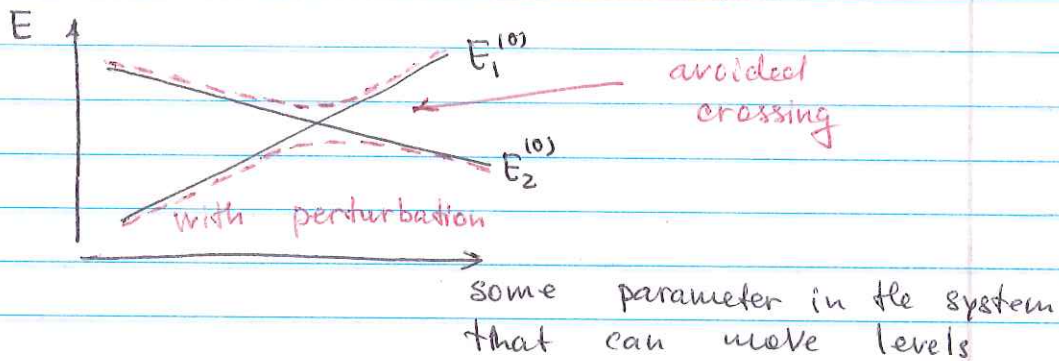 E
E₁⁽⁰⁾
avoided
crossing
E₂⁽⁰⁾
with perturbation
some parameter in the system
that can move levels